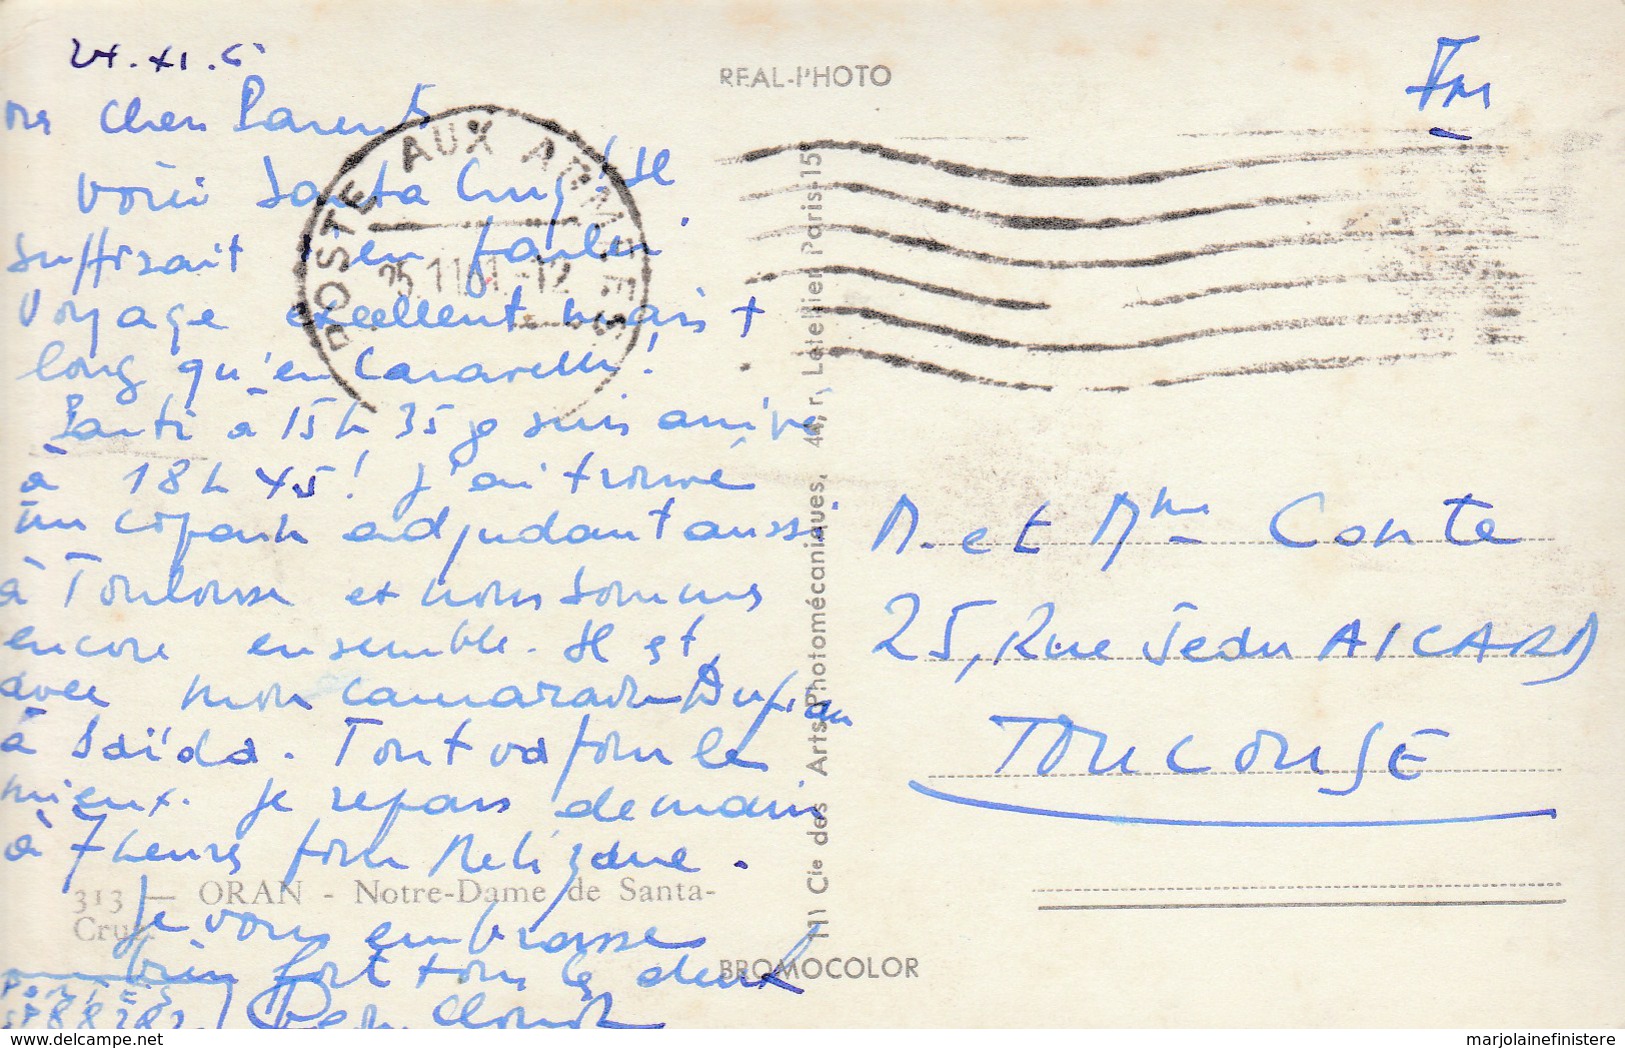 24.XI.6
mes chers Parents
Voici Santa Cruz ! Il
suffisait d'en parler !
Voyage excellent mais +
long qu'en Caravelle !
Parti à 15h 35 je suis arrivé
à 18h 45 ! J'ai trouvé
un copain adjudant aussi
à Toulouse et nous sommes
encore ensemble. Il est
avec mon camarade
à Saïda. Tout va pour le
mieux. Je repars demain
à 7 heures pour Relizane.
Je vous embrasse
bien fort tous les deux
Jean Claude
SP 88282
REAL-PHOTO
FM
POSTE AUX ARMEES
25.11 61 -12
M. et Mme Conte
25, Rue Jean AICARD
TOULOUSE
Cie des Arts Photomécaniques, 44, r. Letellier Paris-15e
313 — ORAN - Notre-Dame de Santa-
Cruz
BROMOCOLOR
marjolainefinistere
delcampe.net